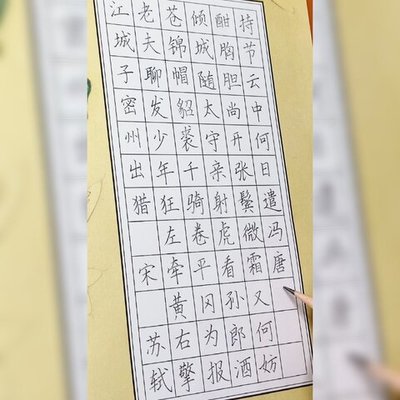 江城子密州出猎宋苏轼
老夫聊发少年狂左牵黄右擎
苍锦帽貂裘千骑卷平冈为报
倾城随太守亲射虎看孙郎酒
酣胸胆尚开张鬓微霜又何妨
持节云中何日遣冯唐